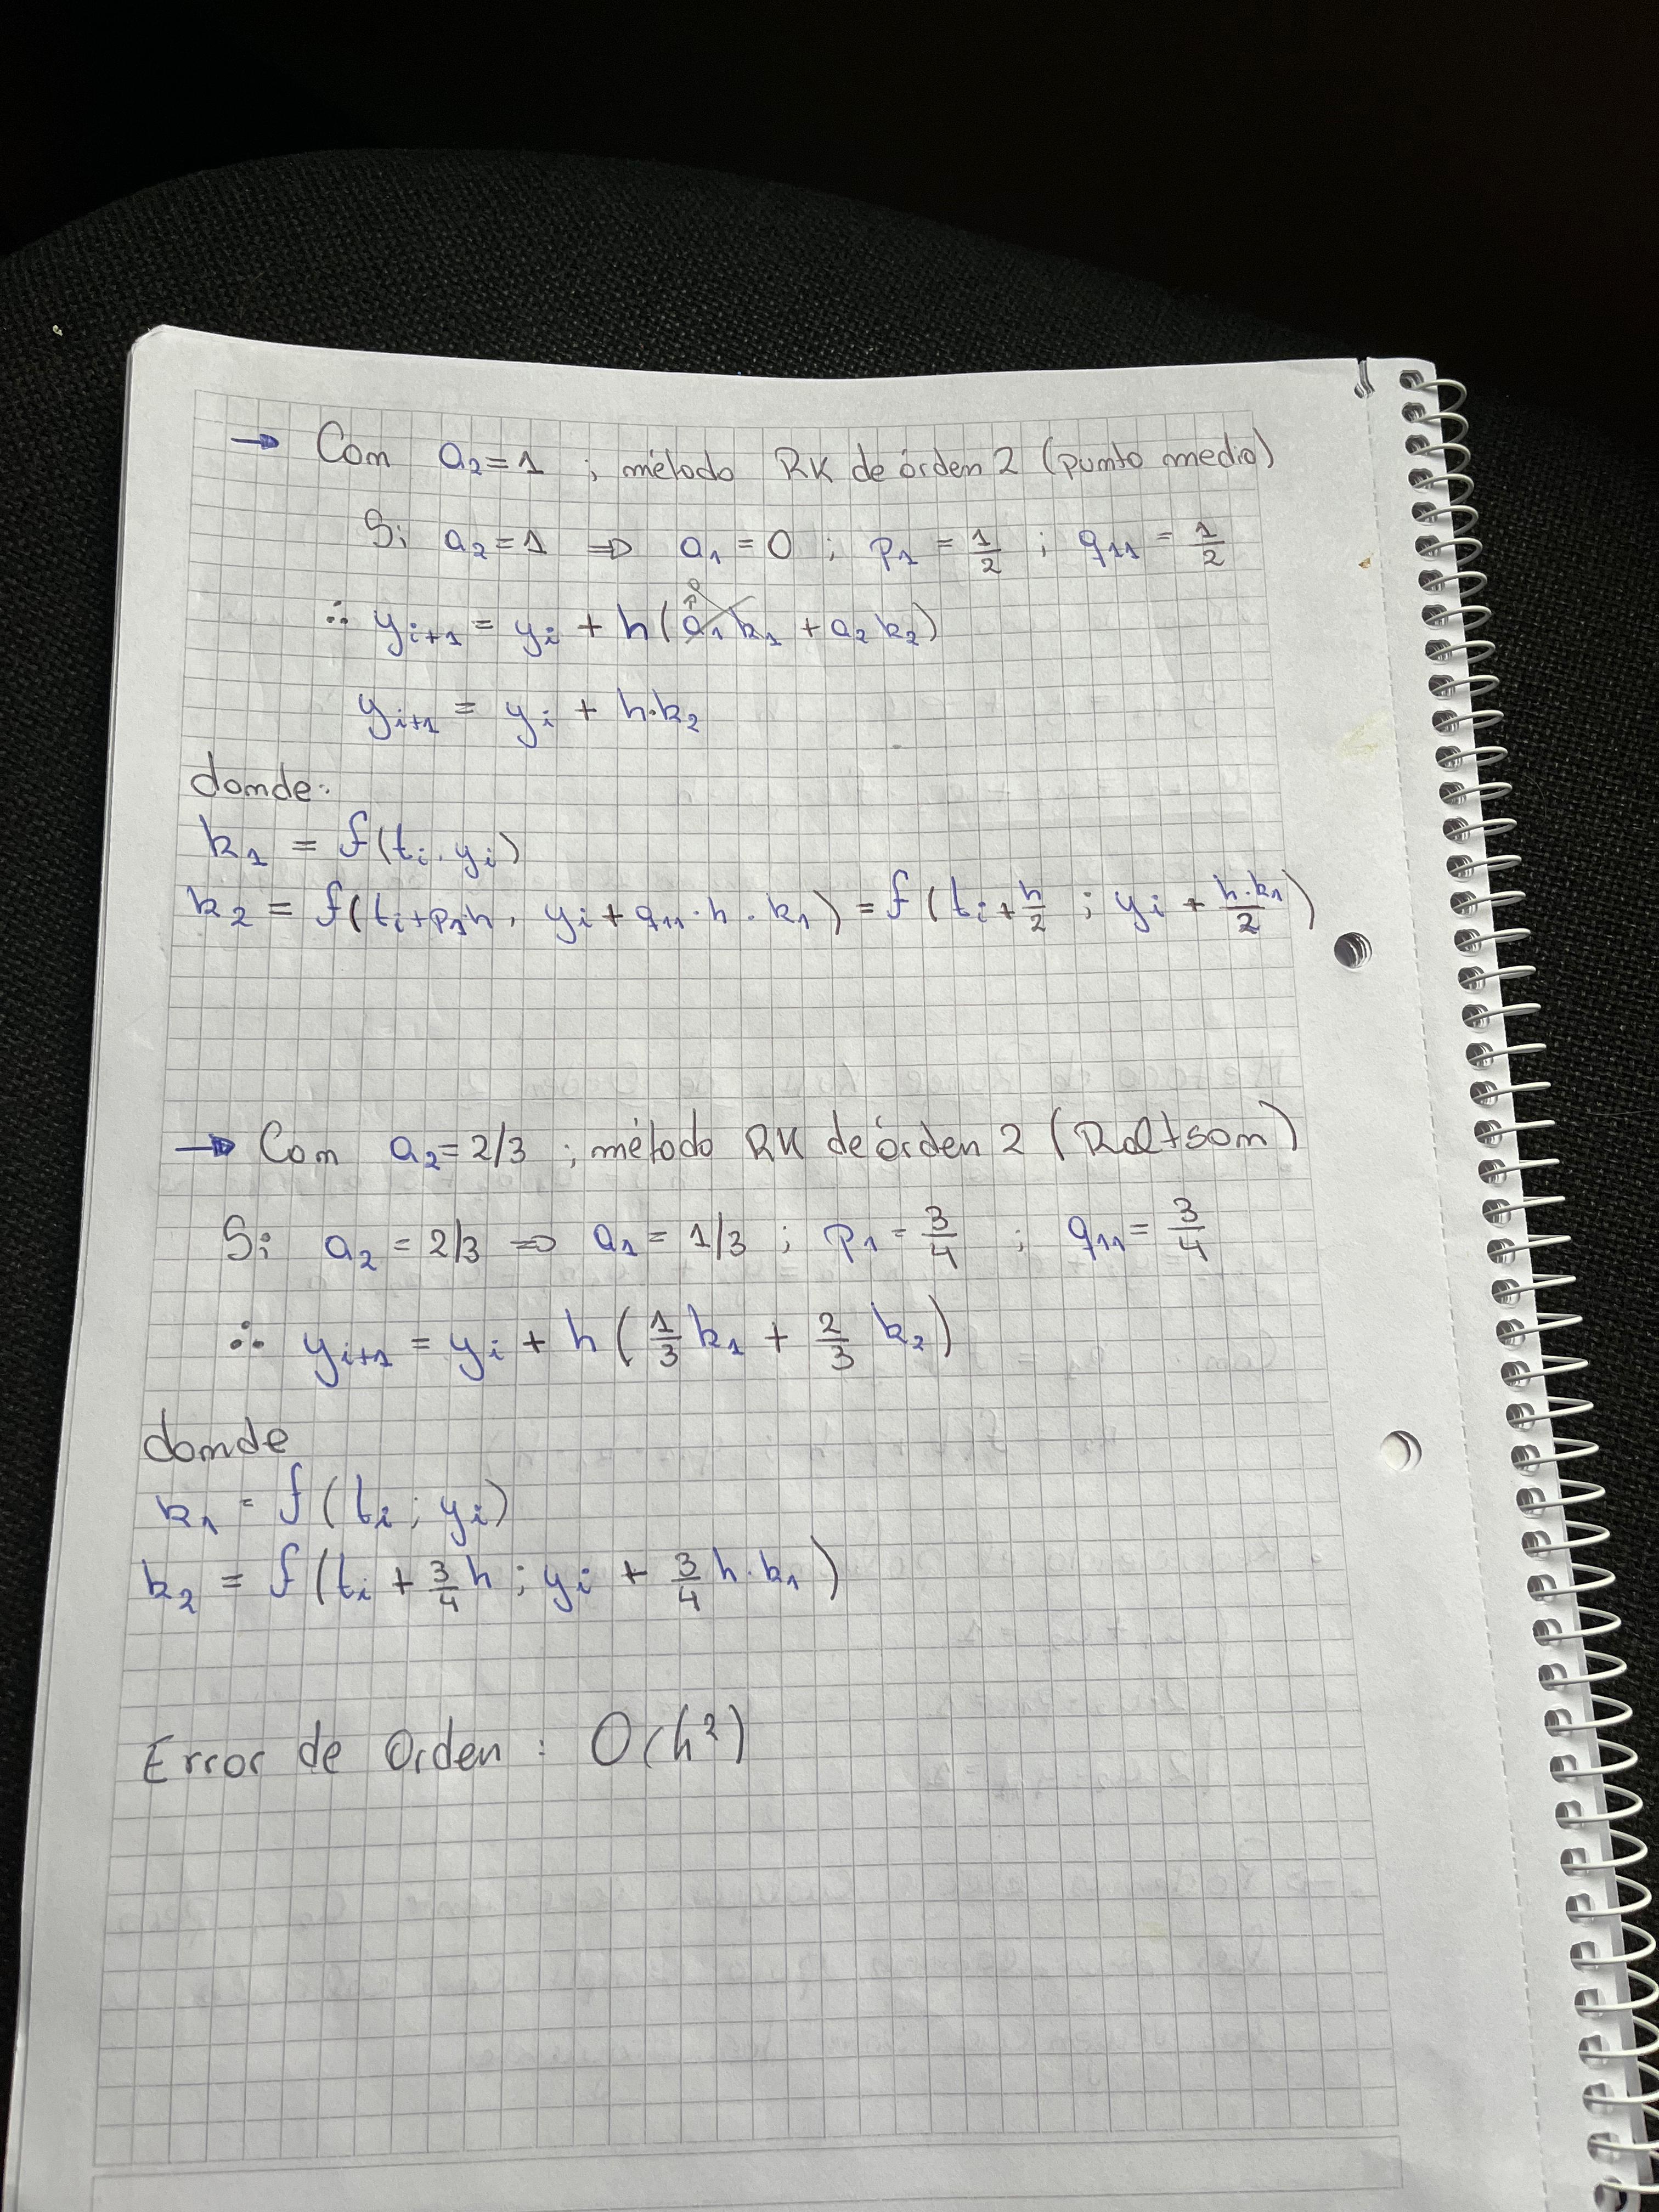 → Con a₂ = 1 ; método RK de órden 2 (punto medio)
Si a₂ = 1 ⇒ a₁ = 0 ; p₁ = 1/2 ; q₁₁ = 1/2
∴ yᵢ₊₁ = yᵢ + h(a₁k₁ + a₂k₂)
yᵢ₊₁ = yᵢ + h·k₂
donde:
k₁ = f(tᵢ, yᵢ)
k₂ = f(tᵢ + p₁·h, yᵢ + q₁₁·h·k₁) = f(tᵢ + h/2 ; yᵢ + h·k₁/2)
→ Con a₂ = 2/3 ; método RK de órden 2 (Raltson)
Si a₂ = 2/3 ⇒ a₁ = 1/3 ; p₁ = 3/4 ; q₁₁ = 3/4
∴ yᵢ₊₁ = yᵢ + h(1/3 k₁ + 2/3 k₂)
donde
k₁ = f(tᵢ ; yᵢ)
k₂ = f(tᵢ + 3/4 h ; yᵢ + 3/4 h·k₁)
Error de Orden : O(h²)